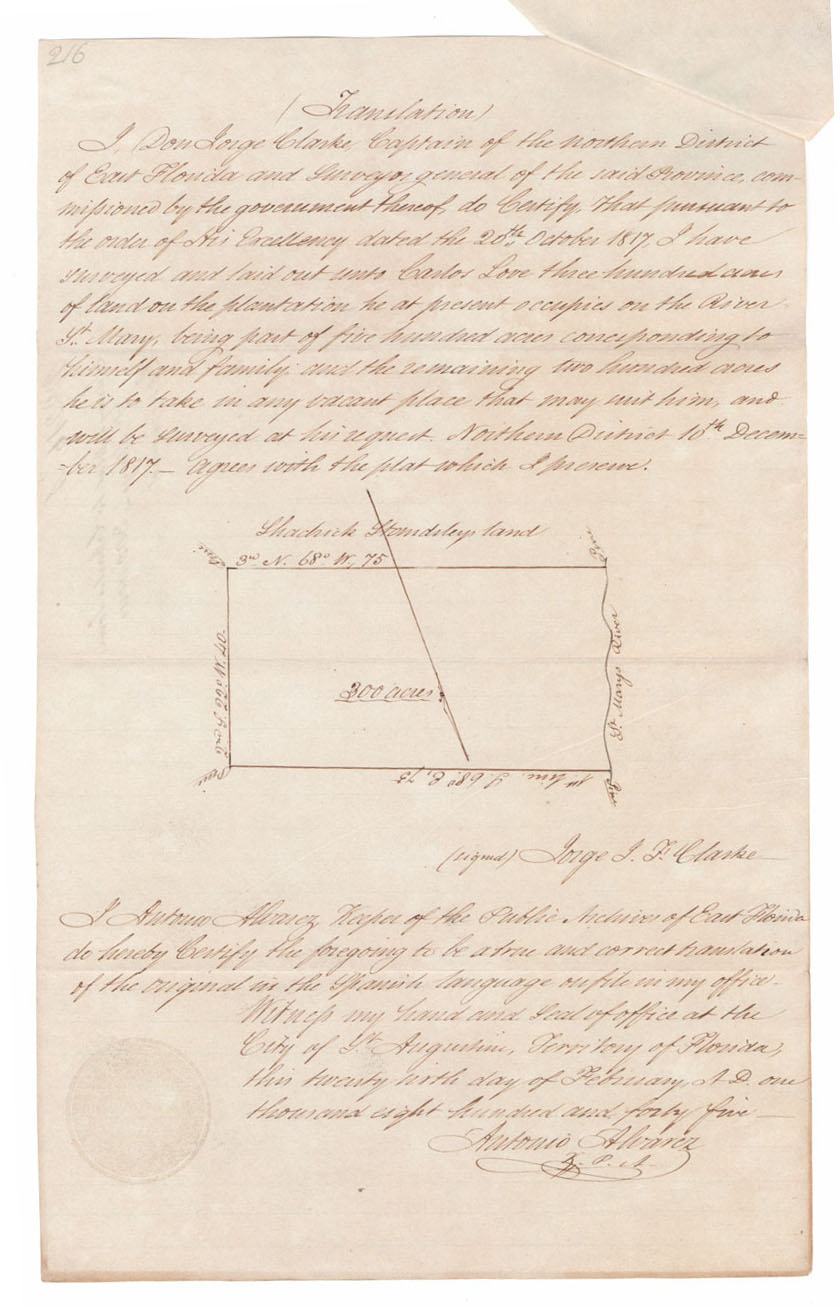 216
(Translation)
I, Don Jorge Clarke, Captain of the northern District
of East Florida and Surveyor general of the said Province, com-
missioned by the government thereof, do Certify, That pursuant to
the order of His Excellency dated the 20th October 1817, I have
surveyed and laid out unto Carlos Love three hundred acres
of land on the plantation he at present occupies on the River
St. Mary, being part of five hundred acres corresponding to
himself and family: and the remaining two hundred acres
he is to take in any vacant place that may suit him, and
will be surveyed at his request. Northern District 10th Decem-
-ber 1817.— Agrees with the plat which I preserve.
Shadrick Standsleys land
Pine
Pine
3rd N. 68° W, 75
2nd S. 22° W. 40
300 acres
St Marys River
1st line. S. 68° E, 75
Pine
Pine
(signed) Jorge J. F. Clarke
I Antonio Alvarez Keeper of the Public Archives of East Florida
do hereby Certify the foregoing to be a true and correct translation
of the original in the Spanish language on file in my office.
Witness my hand and Seal of office at the
City of St. Augustine, Territory of Florida,
this twenty sixth day of February, A. D. one
thousand eight hundred and forty five—
Antonio Alvarez
K. P. A.